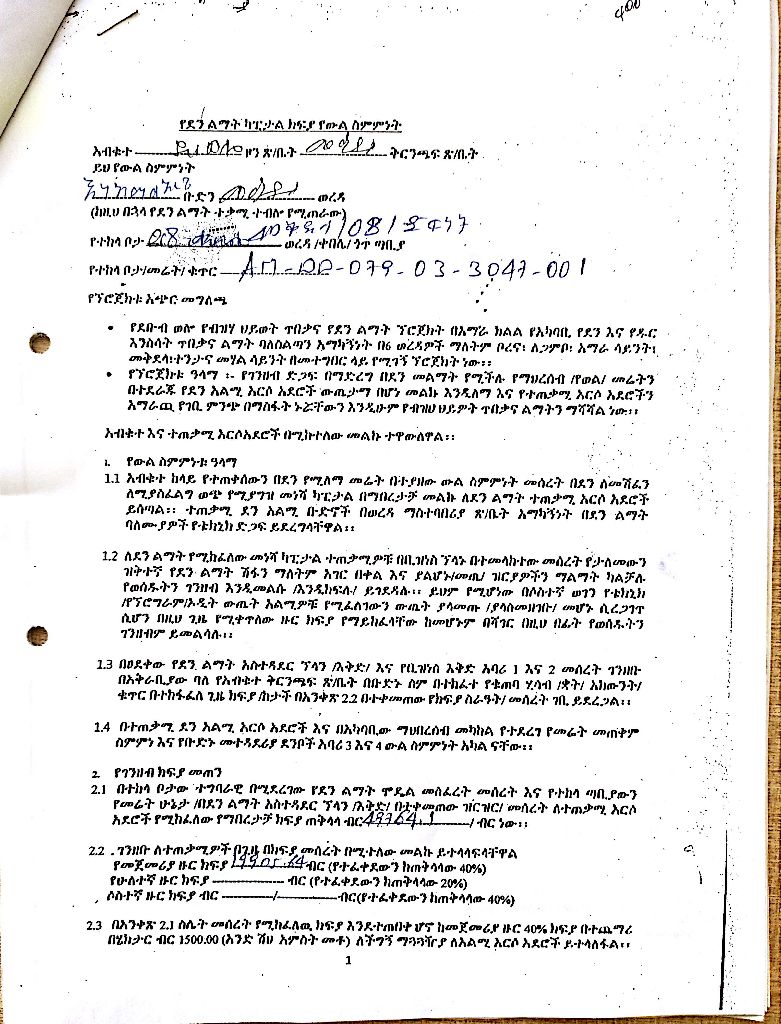 400
የደን ልማት ካፒታል ክፍያ የውል ስምምነት
አብቁተ ዞን ጽ/ቤት ቅርንጫፍ ጽ/ቤት
ይህ የውል ስምምነት
ቡድን ወረዳ
(ከዚህ በኋላ የደን ልማት ተቃሚ ተብሎ የሚጠራው)
የተከላ ቦታ 08 ወረዳ /ቀበሌ/ ጎጥ ጣቢያ
የተከላ ቦታ/መሬት/ ቁጥር AM-DD-079-03-3047-001
የፕሮጀክቱ አጭር መግለጫ
• የደቡብ ወሎ የብዝሃ ህይወት ጥበቃና የደን ልማት ፕሮጀክት በአማራ ክልል የአካባቢ የደን እና የዱር
እንስሳት ጥበቃና ልማት ባለስልጣን አማካኝነት በ6 ወረዳዎች ማለትም ቦረና፣ ለጋምቦ፣ አማራ ሳይንት፣
መቅደላ፣ተንታና መሃል ሳይንት በመተግበር ላይ የሚገኝ ፕሮጀክት ነው፡፡
• የፕሮጀክቱ ዓላማ ፡- የገንዘብ ድጋፍ በማድረግ በደን መልማት የሚችሉ የማህረሰብ /የወል/ መሬትን
በተደራጁ የደን አልሚ አርሶ አደሮች ውጤታማ በሆነ መልኩ እንዲለማ እና የተጠቃሚ አርሶ አደሮችን
አማራጪ የገቢ ምንጭ በማስፋት ኑሯቸውን እንዲሁም የብዝህ ህይዎት ጥበቃና ልማትን ማሻሻል ነው፡፡
አብቁተ እና ተጠቃሚ አርሶአደሮች በሚከተለው መልኩ ተዋውለዋል፡፡
1. የውል ስምምነቱ ዓላማ
1.1 አብቁተ ከላይ የተጠቀሰውን በደን የሚለማ መሬት በተያዘው ውል ስምምነት መሰረት በደን ለመሸፈን
ለሚያስፈልግ ወጭ የሚያግዝ መነሻ ካፒታል በማበረታቻ መልኩ ለደን ልማት ተጠቃሚ አርሶ አደሮች
ይሰጣል፡፡ ተጠቃሚ ደን አልሚ ቡድኖች በወረዳ ማስተባበሪያ ጽ/ቤት አማካኝነት በደን ልማት
ባለሙያዎች የቴክኒክ ድጋፍ ይደረግላቸዋል፡፡
1.2 ለደን ልማት የሚከፈለው መነሻ ካፒታል ተጠቃሚዎቹ በቢዝነስ ፕላኑ በተመላከተው መሰረት የታለመውን
ዝቅተኛ የደን ልማት ሽፋን ማለትም አገር በቀል እና ያልሆኑ/መጤ/ ዝርያዎችን ማልማት ካልቻሉ
የወሰዱትን ገንዘብ እንዲመልሱ /እንዲከፍሉ/ ይገደዳሉ፡፡ ይህም የሚሆነው በሶስተኛ ወገን የቴክኒክ
/የፕሮግራም/ኦዲት ውጤት አልሚዎቹ የሚፈለገውን ውጤት ያላመጡ /ያላስመዘገቡ/ መሆኑ ሲረጋገጥ
ሲሆን በዚህ ጊዜ የሚቀጥለው ዙር ክፍያ የማይከፈላቸው ከመሆኑም በሻገር በዚህ በፊት የወሰዱትን
ገንዘብም ይመልሳሉ፡፡
1.3 በፀደቀው የደን ልማት አስተዳደር ፕላን /እቅድ/ እና የቢዝነስ እቅድ አባሪ 1 እና 2 መሰረት ገንዘቡ
በአቅራቢያው ባለ የአብቁተ ቅርንጫፍ ጽ/ቤት በቡድኑ ስም በተከፈተ የቁጠባ ሂሳብ /ቋት/ አካውንት/
ቁጥር በተከፋፈለ ጊዜ ክፍያ /ከታች በአንቀጽ 2.2 በተቀመጠው የክፍያ ስራዓት/ መሰረት ገቢ ይደረጋል፡፡
1.4 በተጠቃሚ ደን አልሚ አርሶ አደሮች እና በአካባቢው ማህበረሰብ መካከል የተደረገ የመሬት መጠቀም
ስምምነ እና የቡድኑ መተዳደሪያ ደንቦች አባሪ 3 እና 4 ውል ስምምነት አካል ናቸው፡፡
2. የገንዘብ ክፍያ መጠን
2.1 በተከላ ቦታው ተግባራዊ በሚደረገው የደን ልማት ሞዴል መስፈረት መሰረት እና የተከላ ጣቢያውን
የመሬት ሁኔታ /በደን ልማት አስተዳደር ፕላን /እቅድ/ በተቀመጠው ዝርዝር/ መሰረት ለተጠቃሚ አርሶ
አደሮች የሚከፈለው የማበረታቻ ክፍያ ጠቅላላ ብር 49764.1 / ብር ነው፡፡
2.2 . ገንዘቡ ለተጠቃሚዎች በጊዜ በክፍያ መሰረት በሚተለው መልኩ ይተላለፍላቸዋል
የመጀመሪያ ዙር ክፍያ 19905.64 ብር (የተፈቀደውን ከጠቅላላው 40%)
የሁለተኛ ዙር ክፍያ ---------------- ብር (የተፈቀደውን ከጠቅላላው 20%)
ሶስተኛ ዙር ክፍያ ብር -------------/------------- ብር(የተፈቀደውን ከጠቅላላው 40%)
2.3 በአንቀጽ 2.1 ስሌት መሰረት የሚከፈለዉ ክፍያ እንደተጠበቀ ሆኖ ከመጀመሪያ ዙር 40% ክፍያ በተጨማሪ
በሄክታር ብር 1500.00 (አንድ ሽህ አምስት መቶ) ለችግኝ ማጓጓዥያ ለአልሚ አርሶ አደሮች ይተላለፋል፡፡
1